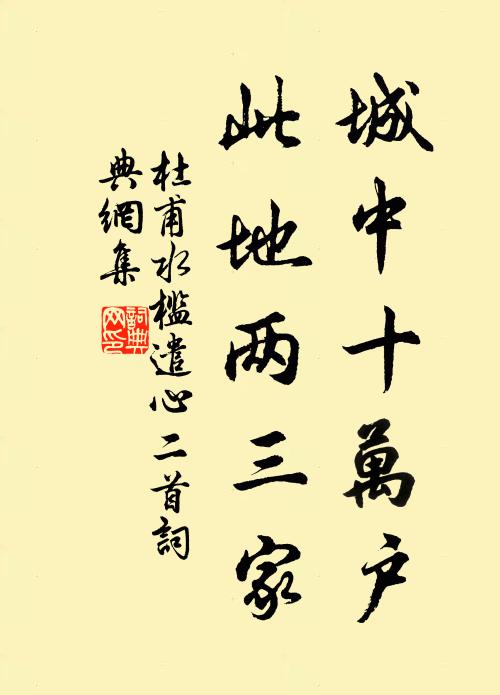 城中十萬户
此地两三家
杜甫水檻遣心二首詞
典網集
詞典
网印